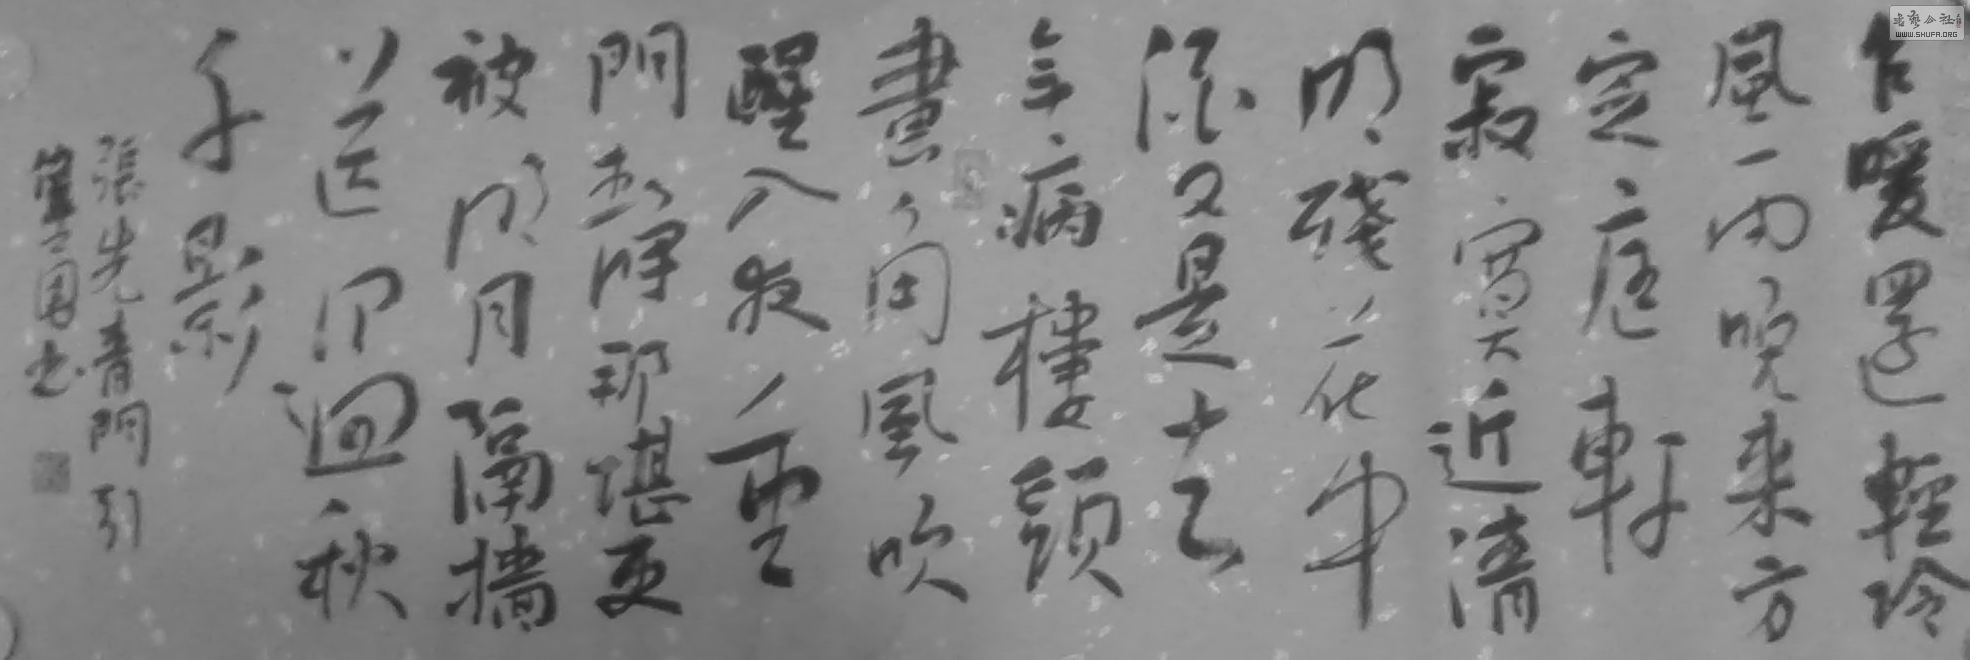 乍暖還輕冷
風雨晚來方
定庭軒
寂寞近清
明殘花中
酒又是去
年病樓頭
畫角風吹
醒入夜重
門靜那堪更
被明月隔墻
送過秋
千影
張先青門引
国书
書藝公社
WWW.SHUFA.ORG